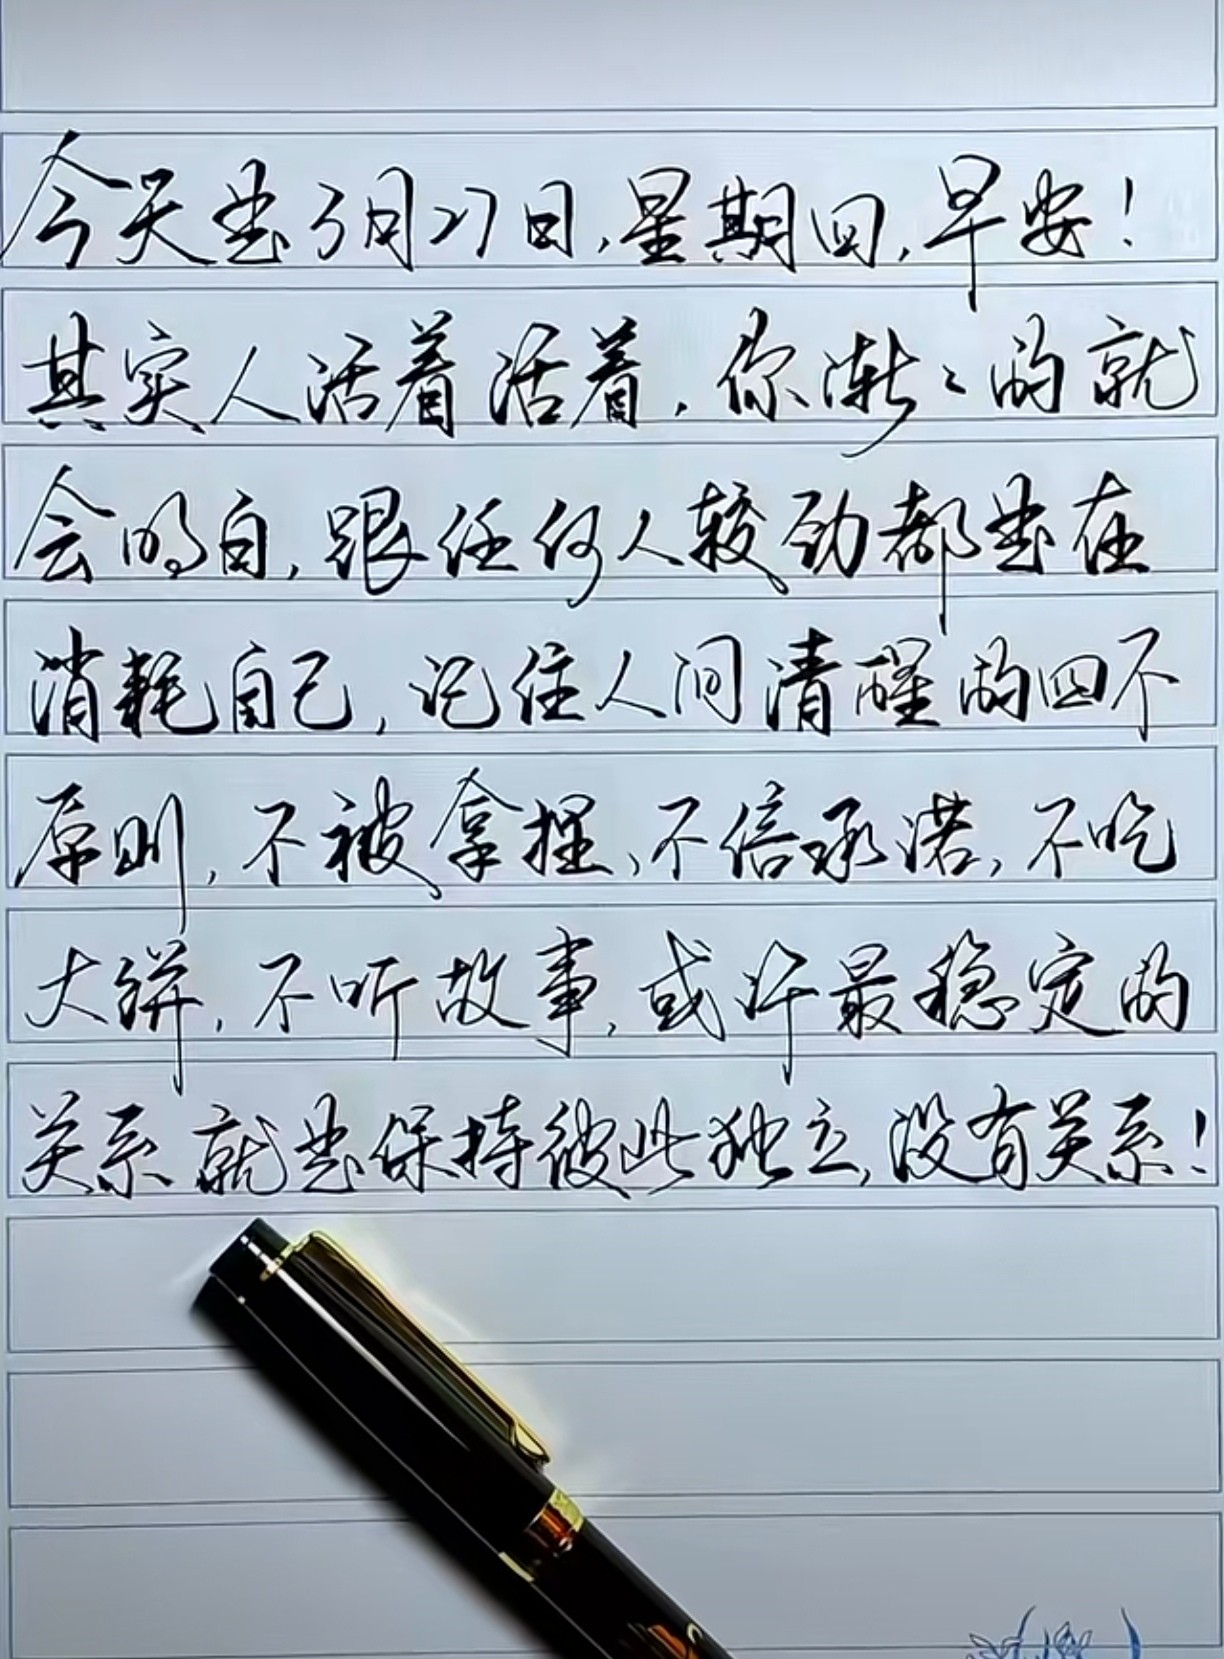 今天是3月27日,星期四,早安!
其实人活着活着,你渐渐的就
会明白,跟任何人较劲都是在
消耗自己,记住人间清醒的四不
原则,不被拿捏、不信承诺,不吃
大饼,不听故事,或许最稳定的
关系就是保持彼此独立,没有关系!